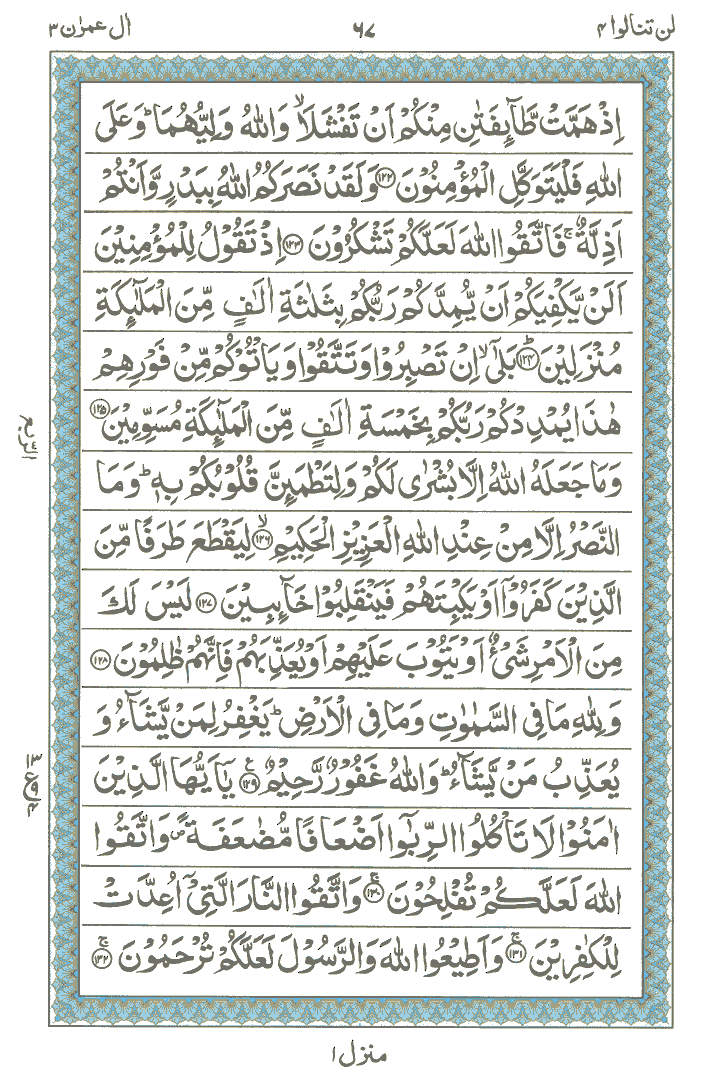 لن تنالوا ٤
٦٧
اٰل عمرٰن ٣
اِذْ هَمَّتْ طَّآئِفَتٰنِ مِنْكُمْ اَنْ تَفْشَلَا ۙ وَاللّٰهُ وَلِيُّهُمَا ؕ وَعَلَى
اللّٰهِ فَلْيَتَوَكَّلِ الْمُؤْمِنُوْنَ ﴿۱۲۲﴾ وَلَقَدْ نَصَرَكُمُ اللّٰهُ بِبَدْرٍ وَّاَنْتُمْ
اَذِلَّةٌ ۚ فَاتَّقُوا اللّٰهَ لَعَلَّكُمْ تَشْكُرُوْنَ ﴿۱۲۳﴾ اِذْ تَقُوْلُ لِلْمُؤْمِنِيْنَ
اَلَنْ يَّكْفِيَكُمْ اَنْ يُّمِدَّكُمْ رَبُّكُمْ بِثَلٰثَةِ اٰلٰفٍ مِّنَ الْمَلٰٓئِكَةِ
مُنْزَلِيْنَ ؕ ﴿۱۲۴﴾ بَلٰٓى ۙ اِنْ تَصْبِرُوْا وَتَتَّقُوْا وَيَاْتُوْكُمْ مِّنْ فَوْرِهِمْ
هٰذَا يُمْدِدْكُمْ رَبُّكُمْ بِخَمْسَةِ اٰلٰفٍ مِّنَ الْمَلٰٓئِكَةِ مُسَوِّمِيْنَ ﴿۱۲۵﴾
وَمَا جَعَلَهُ اللّٰهُ اِلَّا بُشْرٰى لَكُمْ وَلِتَطْمَئِنَّ قُلُوْبُكُمْ بِهٖ ؕ وَمَا
النَّصْرُ اِلَّا مِنْ عِنْدِ اللّٰهِ الْعَزِيْزِ الْحَكِيْمِ ۙ ﴿۱۲۶﴾ لِيَقْطَعَ طَرَفًا مِّنَ
الَّذِيْنَ كَفَرُوْٓا اَوْ يَكْبِتَهُمْ فَيَنْقَلِبُوْا خَآئِبِيْنَ ﴿۱۲۷﴾ لَيْسَ لَكَ
مِنَ الْاَمْرِ شَىْءٌ اَوْ يَتُوْبَ عَلَيْهِمْ اَوْ يُعَذِّبَهُمْ فَاِنَّهُمْ ظٰلِمُوْنَ ﴿۱۲۸﴾
وَلِلّٰهِ مَا فِى السَّمٰوٰتِ وَمَا فِى الْاَرْضِ ؕ يَغْفِرُ لِمَنْ يَّشَآءُ وَ
يُعَذِّبُ مَنْ يَّشَآءُ ؕ وَاللّٰهُ غَفُوْرٌ رَّحِيْمٌ ﴿۱۲۹﴾ ع يٰٓاَيُّهَا الَّذِيْنَ
اٰمَنُوْا لَا تَاْكُلُوا الرِّبٰٓوا اَضْعَافًا مُّضٰعَفَةً ۪ وَاتَّقُوا
اللّٰهَ لَعَلَّكُمْ تُفْلِحُوْنَ ۚ ﴿۱۳۰﴾ وَاتَّقُوا النَّارَ الَّتِىْٓ اُعِدَّتْ
لِلْكٰفِرِيْنَ ۚ ﴿۱۳۱﴾ وَاَطِيْعُوا اللّٰهَ وَالرَّسُوْلَ لَعَلَّكُمْ تُرْحَمُوْنَ ۚ ﴿۱۳۲﴾
الربع
منزل ١